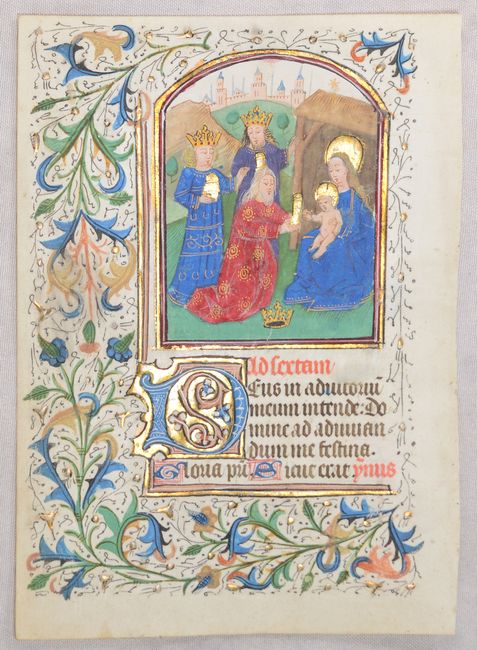 Ad sextam
Deus in adiutoriu
meum intende. Do
mine ad adiuuan
dum me festina.
Gloria pri. Sicut erat ymus